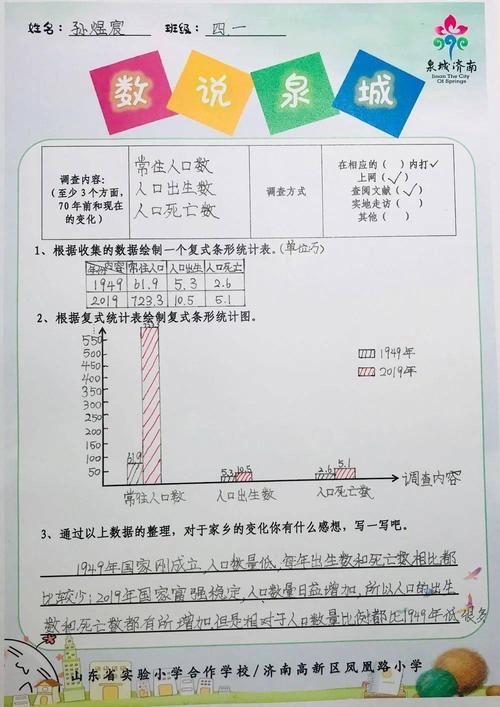 姓名：孙煜宸 班级：四.一
泉城济南
Jinan The City
Of Springs
数说泉城
调查内容：
(至少3个方面，
70年前和现在
的变化)
常住人口数
人口出生数
人口死亡数
调查方式
在相应的（ ）内打✓
上网（✓）
查阅文献（✓）
实地走访（ ）
其他（ ）
1、根据收集的数据绘制一个复式条形统计表。(单位万)
年份 内容 常住人口 人口出生 人口死亡
1949 61.9 5.3 2.6
2019 723.3 10.5 5.1
2、根据复式统计表绘制复式条形统计图。
550
500
450
400
350
300
250
200
150
100
50
1949年
2019年
61.9
5.3 10.5
2.6 5.1
常住人口数 人口出生数 人口死亡数
调查内容
3、通过以上数据的整理，对于家乡的变化你有什么感想，写一写吧。
1949年国家刚成立，人口数量低，每年出生数和死亡数相比都
比较少；2019年国家富强稳定，人口数量日益增加，所以人口的出生
数和死亡数都有所增加但是相对于人口数量比例都比1949年低很多
山东省实验小学合作学校/济南高新区凤凰路小学